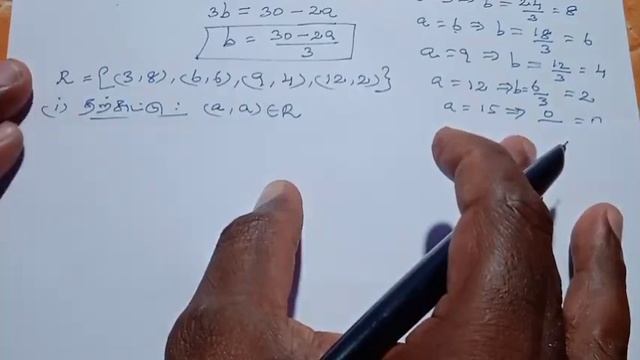 3b = 30 - 2a
b = (30 - 2a)/3
R = {(3,8), (6,6), (9,4), (12,2)}
(i) தற்சுட்டு : (a, a) ∈ R
b = 24/3 = 8
a = 6 ⇒ b = 18/3 = 6
a = 9 ⇒ b = 12/3 = 4
a = 12 ⇒ b = 6/3 = 2
a = 15 ⇒ 0 =